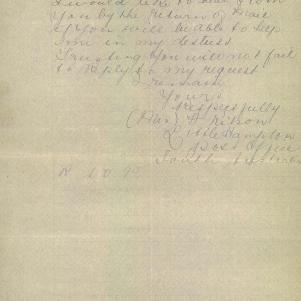 I would like to hear from
You by the Return of Mail
if You will be able to help
me in my distress
Trusting You will not fail
to Reply to my request
I remain
Yours
Respectfully
(Mrs) A
Little Hampton
Post Office
South Australia